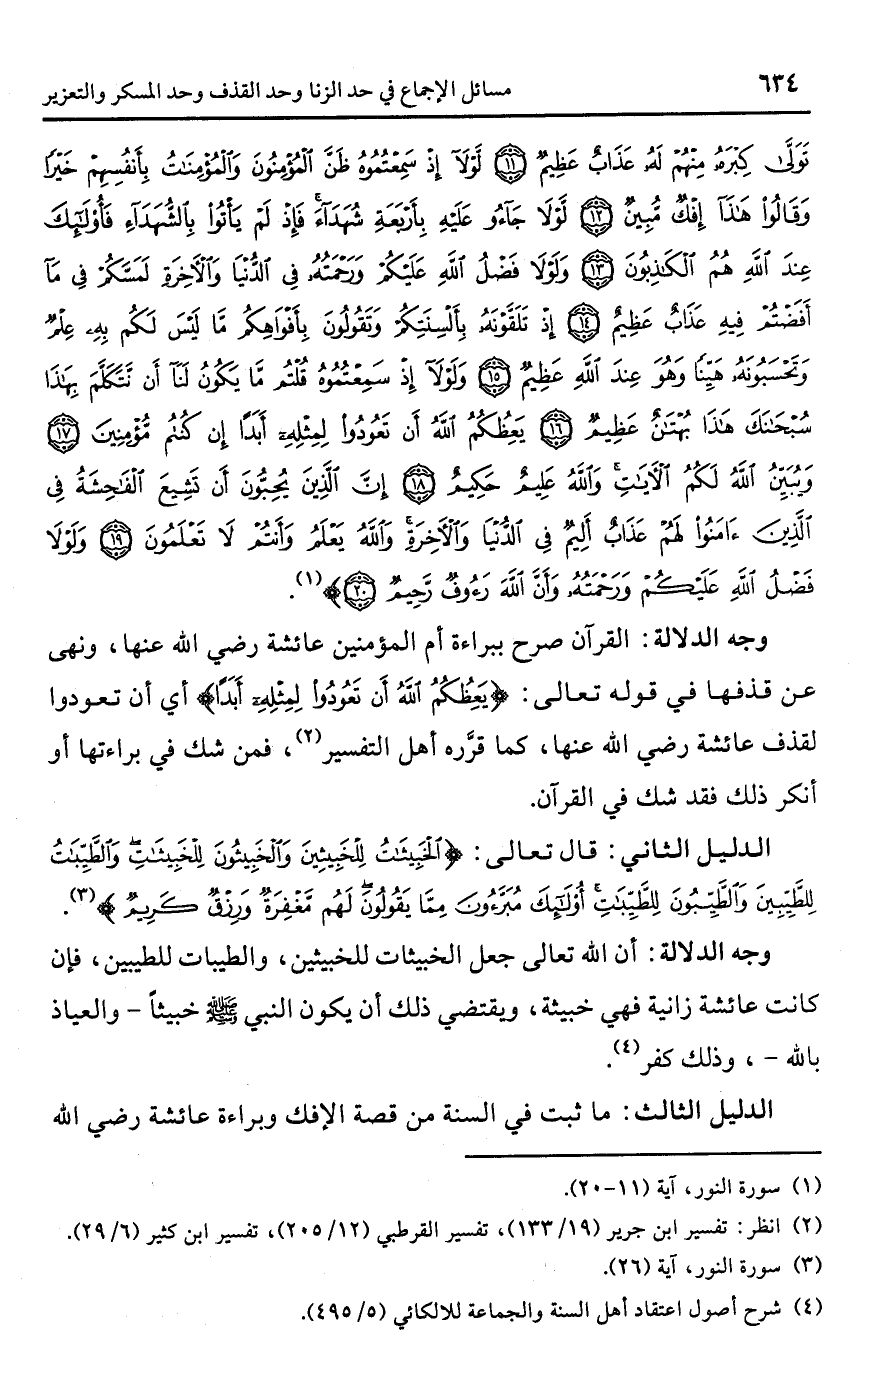 ٦٣٤
مسائل الإجماع في حد الزنا وحد القذف وحد المسكر والتعزير
تَوَلَّىٰ كِبْرَهُۥ مِنْهُمْ لَهُۥ عَذَابٌ عَظِيمٌ ﴿١١﴾ لَّوْلَآ إِذْ سَمِعْتُمُوهُ ظَنَّ ٱلْمُؤْمِنُونَ وَٱلْمُؤْمِنَٰتُ بِأَنفُسِهِمْ خَيْرًا
وَقَالُوا۟ هَٰذَآ إِفْكٌ مُّبِينٌ ﴿١٢﴾ لَّوْلَا جَآءُو عَلَيْهِ بِأَرْبَعَةِ شُهَدَآءَ ۚ فَإِذْ لَمْ يَأْتُوا۟ بِٱلشُّهَدَآءِ فَأُو۟لَٰٓئِكَ
عِندَ ٱللَّهِ هُمُ ٱلْكَٰذِبُونَ ﴿١٣﴾ وَلَوْلَا فَضْلُ ٱللَّهِ عَلَيْكُمْ وَرَحْمَتُهُۥ فِى ٱلدُّنْيَا وَٱلْءَاخِرَةِ لَمَسَّكُمْ فِى مَآ
أَفَضْتُمْ فِيهِ عَذَابٌ عَظِيمٌ ﴿١٤﴾ إِذْ تَلَقَّوْنَهُۥ بِأَلْسِنَتِكُمْ وَتَقُولُونَ بِأَفْوَاهِكُم مَّا لَيْسَ لَكُم بِهِۦ عِلْمٌ
وَتَحْسَبُونَهُۥ هَيِّنًا وَهُوَ عِندَ ٱللَّهِ عَظِيمٌ ﴿١٥﴾ وَلَوْلَآ إِذْ سَمِعْتُمُوهُ قُلْتُم مَّا يَكُونُ لَنَآ أَن نَّتَكَلَّمَ بِهَٰذَا
سُبْحَٰنَكَ هَٰذَا بُهْتَٰنٌ عَظِيمٌ ﴿١٦﴾ يَعِظُكُمُ ٱللَّهُ أَن تَعُودُوا۟ لِمِثْلِهِۦٓ أَبَدًا إِن كُنتُم مُّؤْمِنِينَ ﴿١٧﴾
وَيُبَيِّنُ ٱللَّهُ لَكُمُ ٱلْءَايَٰتِ ۚ وَٱللَّهُ عَلِيمٌ حَكِيمٌ ﴿١٨﴾ إِنَّ ٱلَّذِينَ يُحِبُّونَ أَن تَشِيعَ ٱلْفَٰحِشَةُ فِى
ٱلَّذِينَ ءَامَنُوا۟ لَهُمْ عَذَابٌ أَلِيمٌ فِى ٱلدُّنْيَا وَٱلْءَاخِرَةِ ۚ وَٱللَّهُ يَعْلَمُ وَأَنتُمْ لَا تَعْلَمُونَ ﴿١٩﴾ وَلَوْلَا
فَضْلُ ٱللَّهِ عَلَيْكُمْ وَرَحْمَتُهُۥ وَأَنَّ ٱللَّهَ رَءُوفٌ رَّحِيمٌ ﴿٢٠﴾﴾(١).
وجه الدلالة: القرآن صرح ببراءة أم المؤمنين عائشة رضي الله عنها، ونهى
عن قذفها في قوله تعالى: ﴿يَعِظُكُمُ ٱللَّهُ أَن تَعُودُوا۟ لِمِثْلِهِۦٓ أَبَدًا﴾ أي أن تعودوا
لقذف عائشة رضي الله عنها، كما قرَّره أهل التفسير(٢)، فمن شك في براءتها أو
أنكر ذلك فقد شك في القرآن.
الدليل الثاني: قال تعالى: ﴿ٱلْخَبِيثَٰتُ لِلْخَبِيثِينَ وَٱلْخَبِيثُونَ لِلْخَبِيثَٰتِ ۖ وَٱلطَّيِّبَٰتُ
لِلطَّيِّبِينَ وَٱلطَّيِّبُونَ لِلطَّيِّبَٰتِ ۚ أُو۟لَٰٓئِكَ مُبَرَّءُونَ مِمَّا يَقُولُونَ ۖ لَهُم مَّغْفِرَةٌ وَرِزْقٌ كَرِيمٌ﴾(٣).
وجه الدلالة: أن الله تعالى جعل الخبيثات للخبيثين، والطيبات للطيبين، فإن
كانت عائشة زانية فهي خبيثة، ويقتضي ذلك أن يكون النبي ﷺ خبيثاً - والعياذ
بالله - ، وذلك كفر(٤).
الدليل الثالث: ما ثبت في السنة من قصة الإفك وبراءة عائشة رضي الله
(١) سورة النور، آية (١١-٢٠).
(٢) انظر: تفسير ابن جرير (١٩/ ١٣٣)، تفسير القرطبي (١٢/ ٢٠٥)، تفسير ابن كثير (٦/ ٢٩).
(٣) سورة النور، آية (٢٦).
(٤) شرح أصول اعتقاد أهل السنة والجماعة للالكائي (٥/ ٤٩٥).